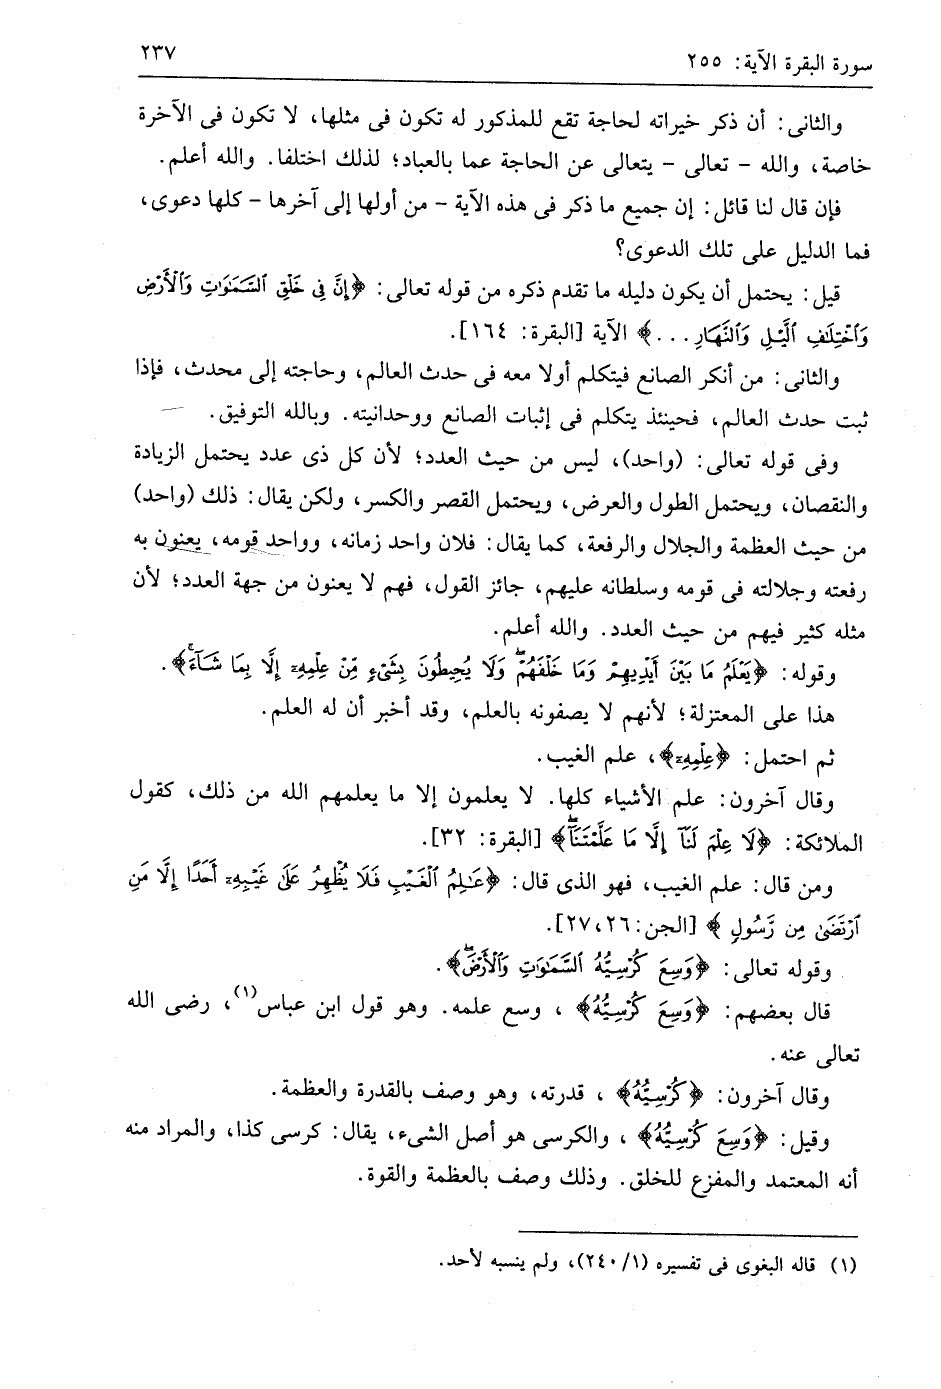 سورة البقرة الآية: ٢٥٥
٢٣٧
والثانى: أن ذكر خيراته لحاجة تقع للمذكور له تكون فى مثلها، لا تكون فى الآخرة
خاصة، والله - تعالى - يتعالى عن الحاجة عما بالعباد؛ لذلك اختلفا. والله أعلم.
فإن قال لنا قائل: إن جميع ما ذكر فى هذه الآية - من أولها إلى آخرها - كلها دعوى،
فما الدليل على تلك الدعوى؟
قيل: يحتمل أن يكون دليله ما تقدم ذكره من قوله تعالى: ﴿إِنَّ فِى خَلْقِ ٱلسَّمَـٰوَٰتِ وَٱلْأَرْضِ
وَٱخْتِلَـٰفِ ٱلَّيْلِ وَٱلنَّهَارِ . . .﴾ الآية [البقرة: ١٦٤].
والثانى: من أنكر الصانع فيتكلم أولا معه فى حدث العالم، وحاجته إلى محدث، فإذا
ثبت حدث العالم، فحينئذ يتكلم فى إثبات الصانع ووحدانيته. وبالله التوفيق.
وفى قوله تعالى: (واحد)، ليس من حيث العدد؛ لأن كل ذى عدد يحتمل الزيادة
والنقصان، ويحتمل الطول والعرض، ويحتمل القصر والكسر، ولكن يقال: ذلك (واحد)
من حيث العظمة والجلال والرفعة، كما يقال: فلان واحد زمانه، وواحد قومه، يعنون به
رفعته وجلالته فى قومه وسلطانه عليهم، جائز القول، فهم لا يعنون من جهة العدد؛ لأن
مثله كثير فيهم من حيث العدد. والله أعلم.
وقوله: ﴿يَعْلَمُ مَا بَيْنَ أَيْدِيهِمْ وَمَا خَلْفَهُمْ ۖ وَلَا يُحِيطُونَ بِشَىْءٍ مِّنْ عِلْمِهِۦٓ إِلَّا بِمَا شَآءَ ۚ﴾.
هذا على المعتزلة؛ لأنهم لا يصفونه بالعلم، وقد أخبر أن له العلم.
ثم احتمل: ﴿عِلْمِهِۦٓ﴾، علم الغيب.
وقال آخرون: علم الأشياء كلها. لا يعلمون إلا ما يعلمهم الله من ذلك، كقول
الملائكة: ﴿لَا عِلْمَ لَنَآ إِلَّا مَا عَلَّمْتَنَآ ۖ﴾ [البقرة: ٣٢].
ومن قال: علم الغيب، فهو الذى قال: ﴿عَـٰلِمُ ٱلْغَيْبِ فَلَا يُظْهِرُ عَلَىٰ غَيْبِهِۦٓ أَحَدًا إِلَّا مَنِ
ٱرْتَضَىٰ مِن رَّسُولٍ ﴾ [الجن: ٢٦، ٢٧].
وقوله تعالى: ﴿وَسِعَ كُرْسِيُّهُ ٱلسَّمَـٰوَٰتِ وَٱلْأَرْضَ ۖ﴾.
قال بعضهم: ﴿وَسِعَ كُرْسِيُّهُ﴾ ، وسع علمه. وهو قول ابن عباس(١)، رضى الله
تعالى عنه.
وقال آخرون: ﴿كُرْسِيُّهُ﴾ ، قدرته، وهو وصف بالقدرة والعظمة.
وقيل: ﴿وَسِعَ كُرْسِيُّهُ﴾ ، والكرسى هو أصل الشىء، يقال: كرسى كذا، والمراد منه
أنه المعتمد والمفزع للخلق. وذلك وصف بالعظمة والقوة.
(١) قاله البغوى فى تفسيره (١/ ٢٤٠)، ولم ينسبه لأحد.